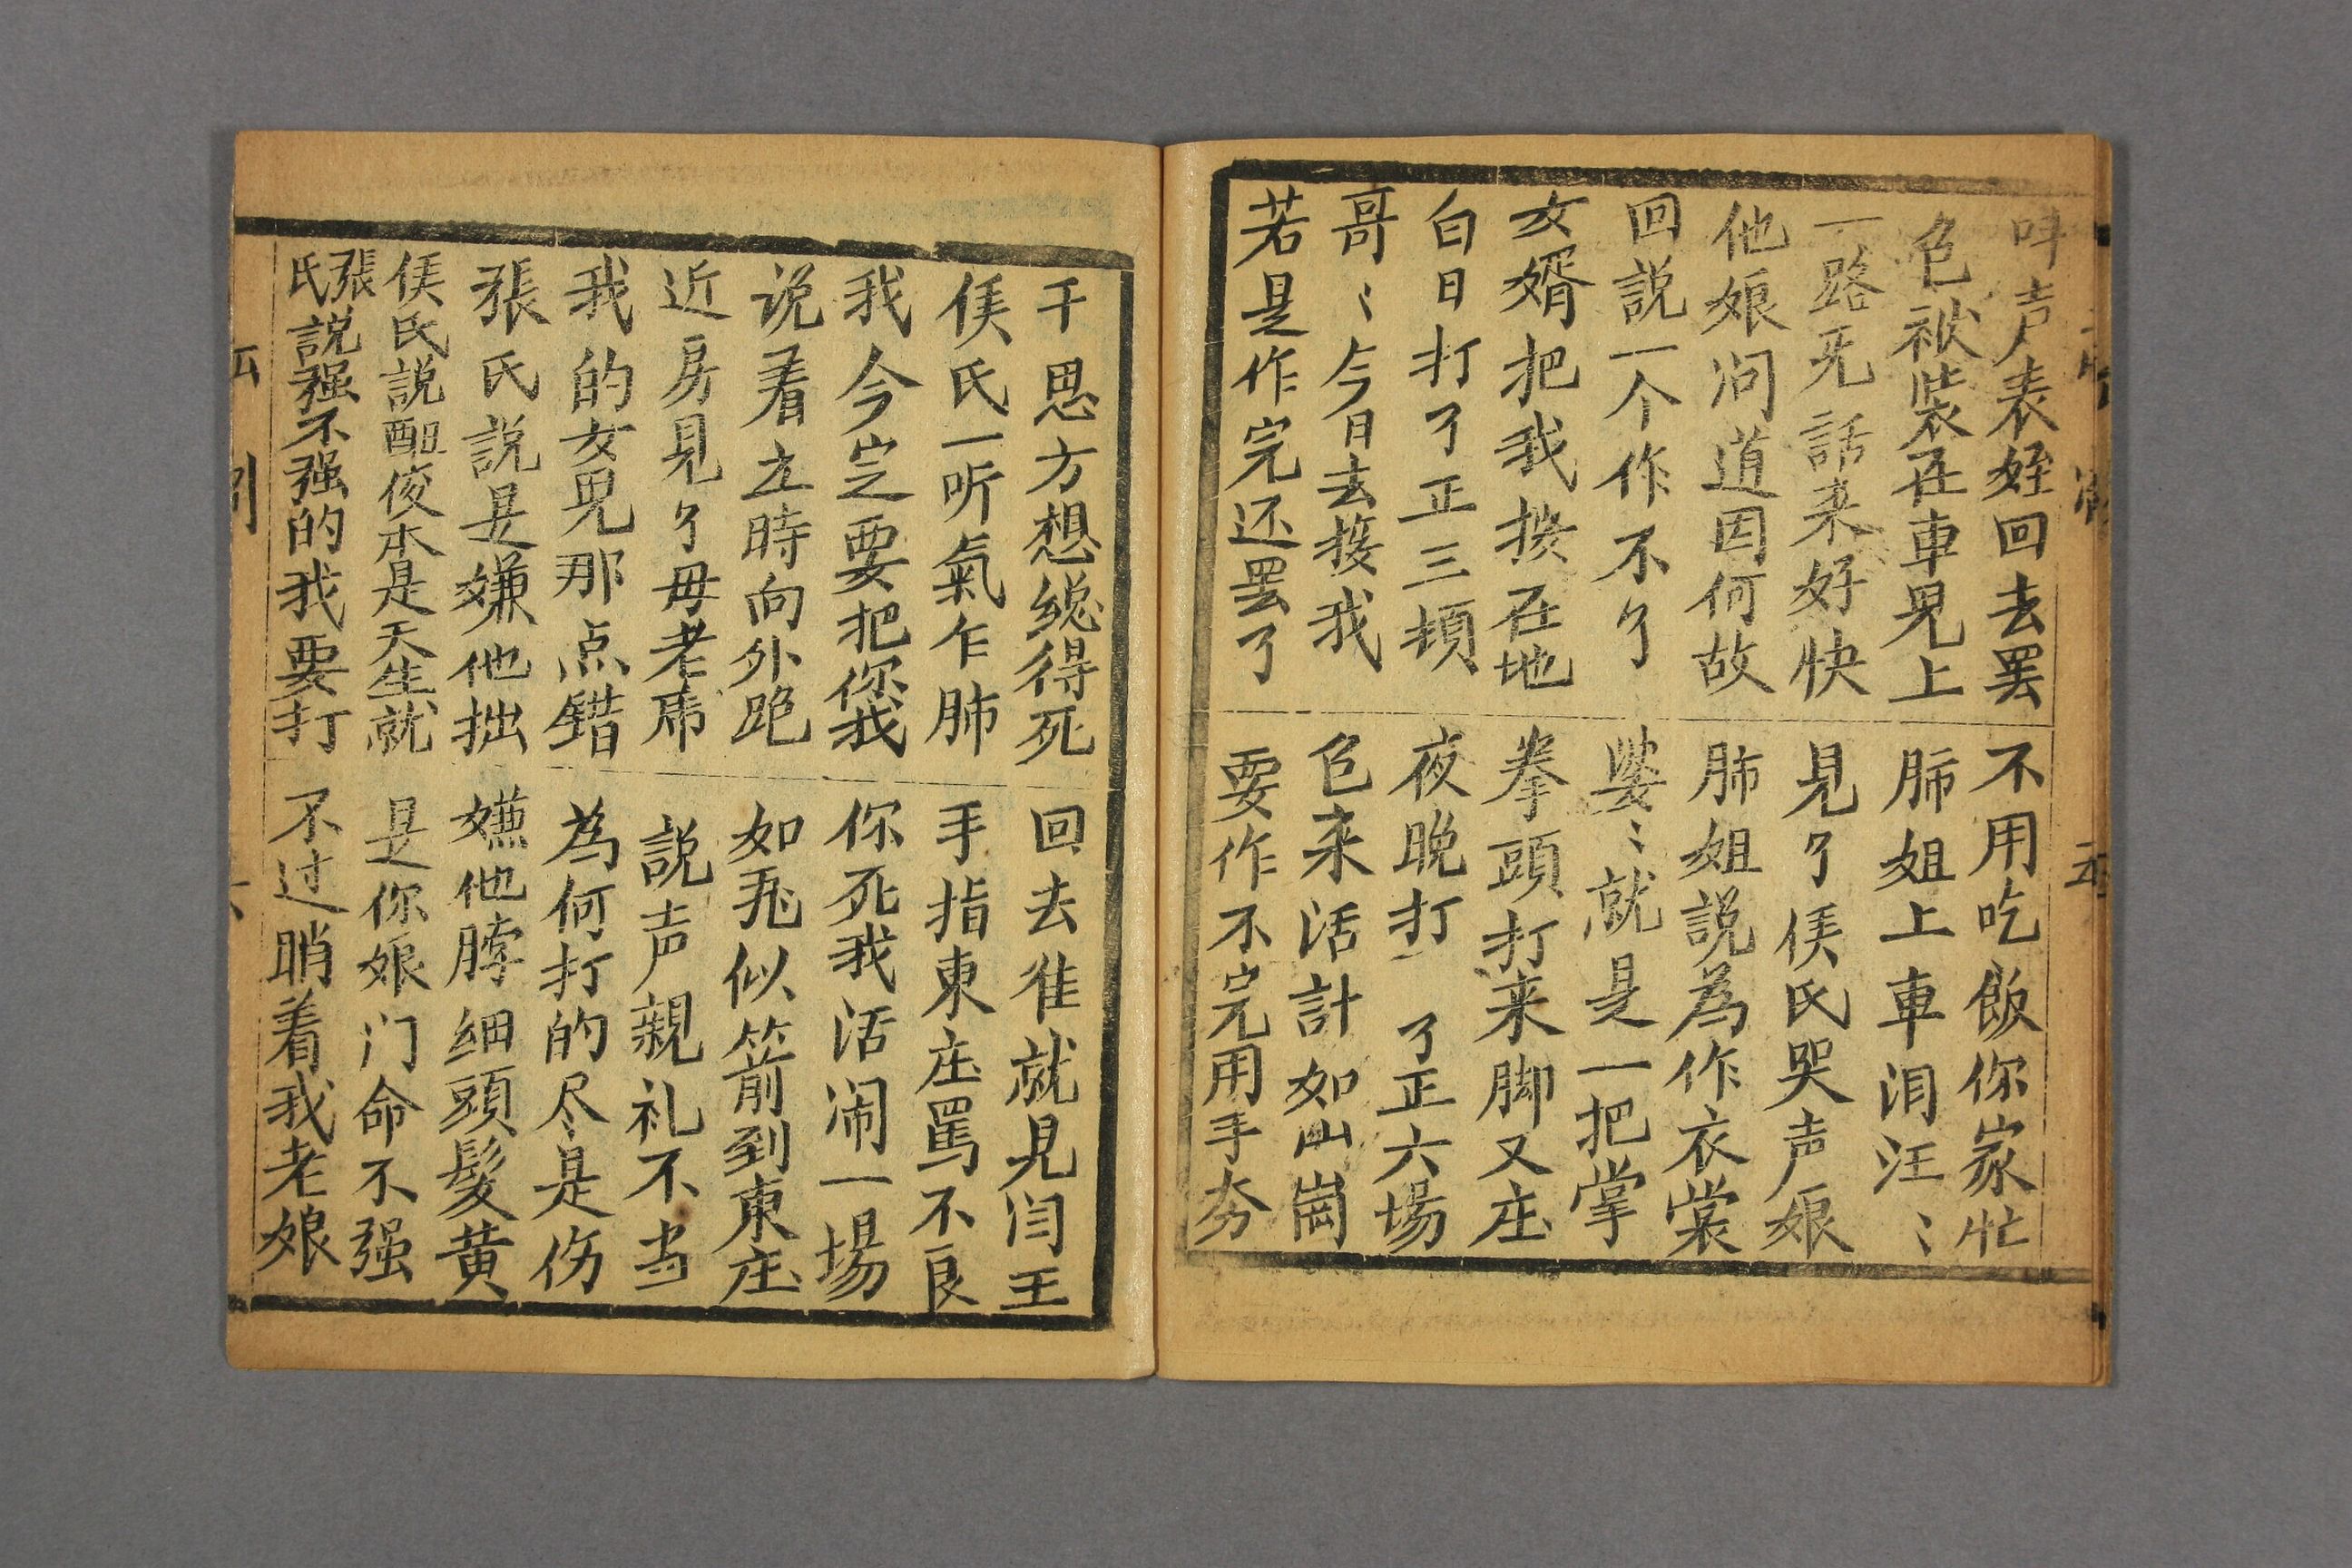 叫声表姪回去罢　不用吃飯你家忙
色袱裝在車兒上　肺姐上車泪汪〻
一路无話来好快　見了侯氏哭声娘
他娘问道因何故　肺姐說為作衣裳
回説一个作不了　婆〻就是一把掌
女婿把我按在地　拳頭打来脚又庄
白日打了正三頓　夜晚打了正六場
哥〻今日去接我　色来活計如山崗
若是作完还罢了　要作不完用手夯
千思方想総得死　回去准就見闫王
侯氏一听氣乍肺　手指東庄罵不良
我今定要把你我　你死我活闹一場
说着立時向外跑　如飛似箭到東庄
近房見了毋老虎　説声親礼不当
我的女兒那点錯　為何打的尽是伤
張氏説是嫌他拙　嫌他脖细頭髮黄
侯氏説配俊本是天生就　是你娘门命不强
張氏說强不强的我要打　不过睄着我老娘